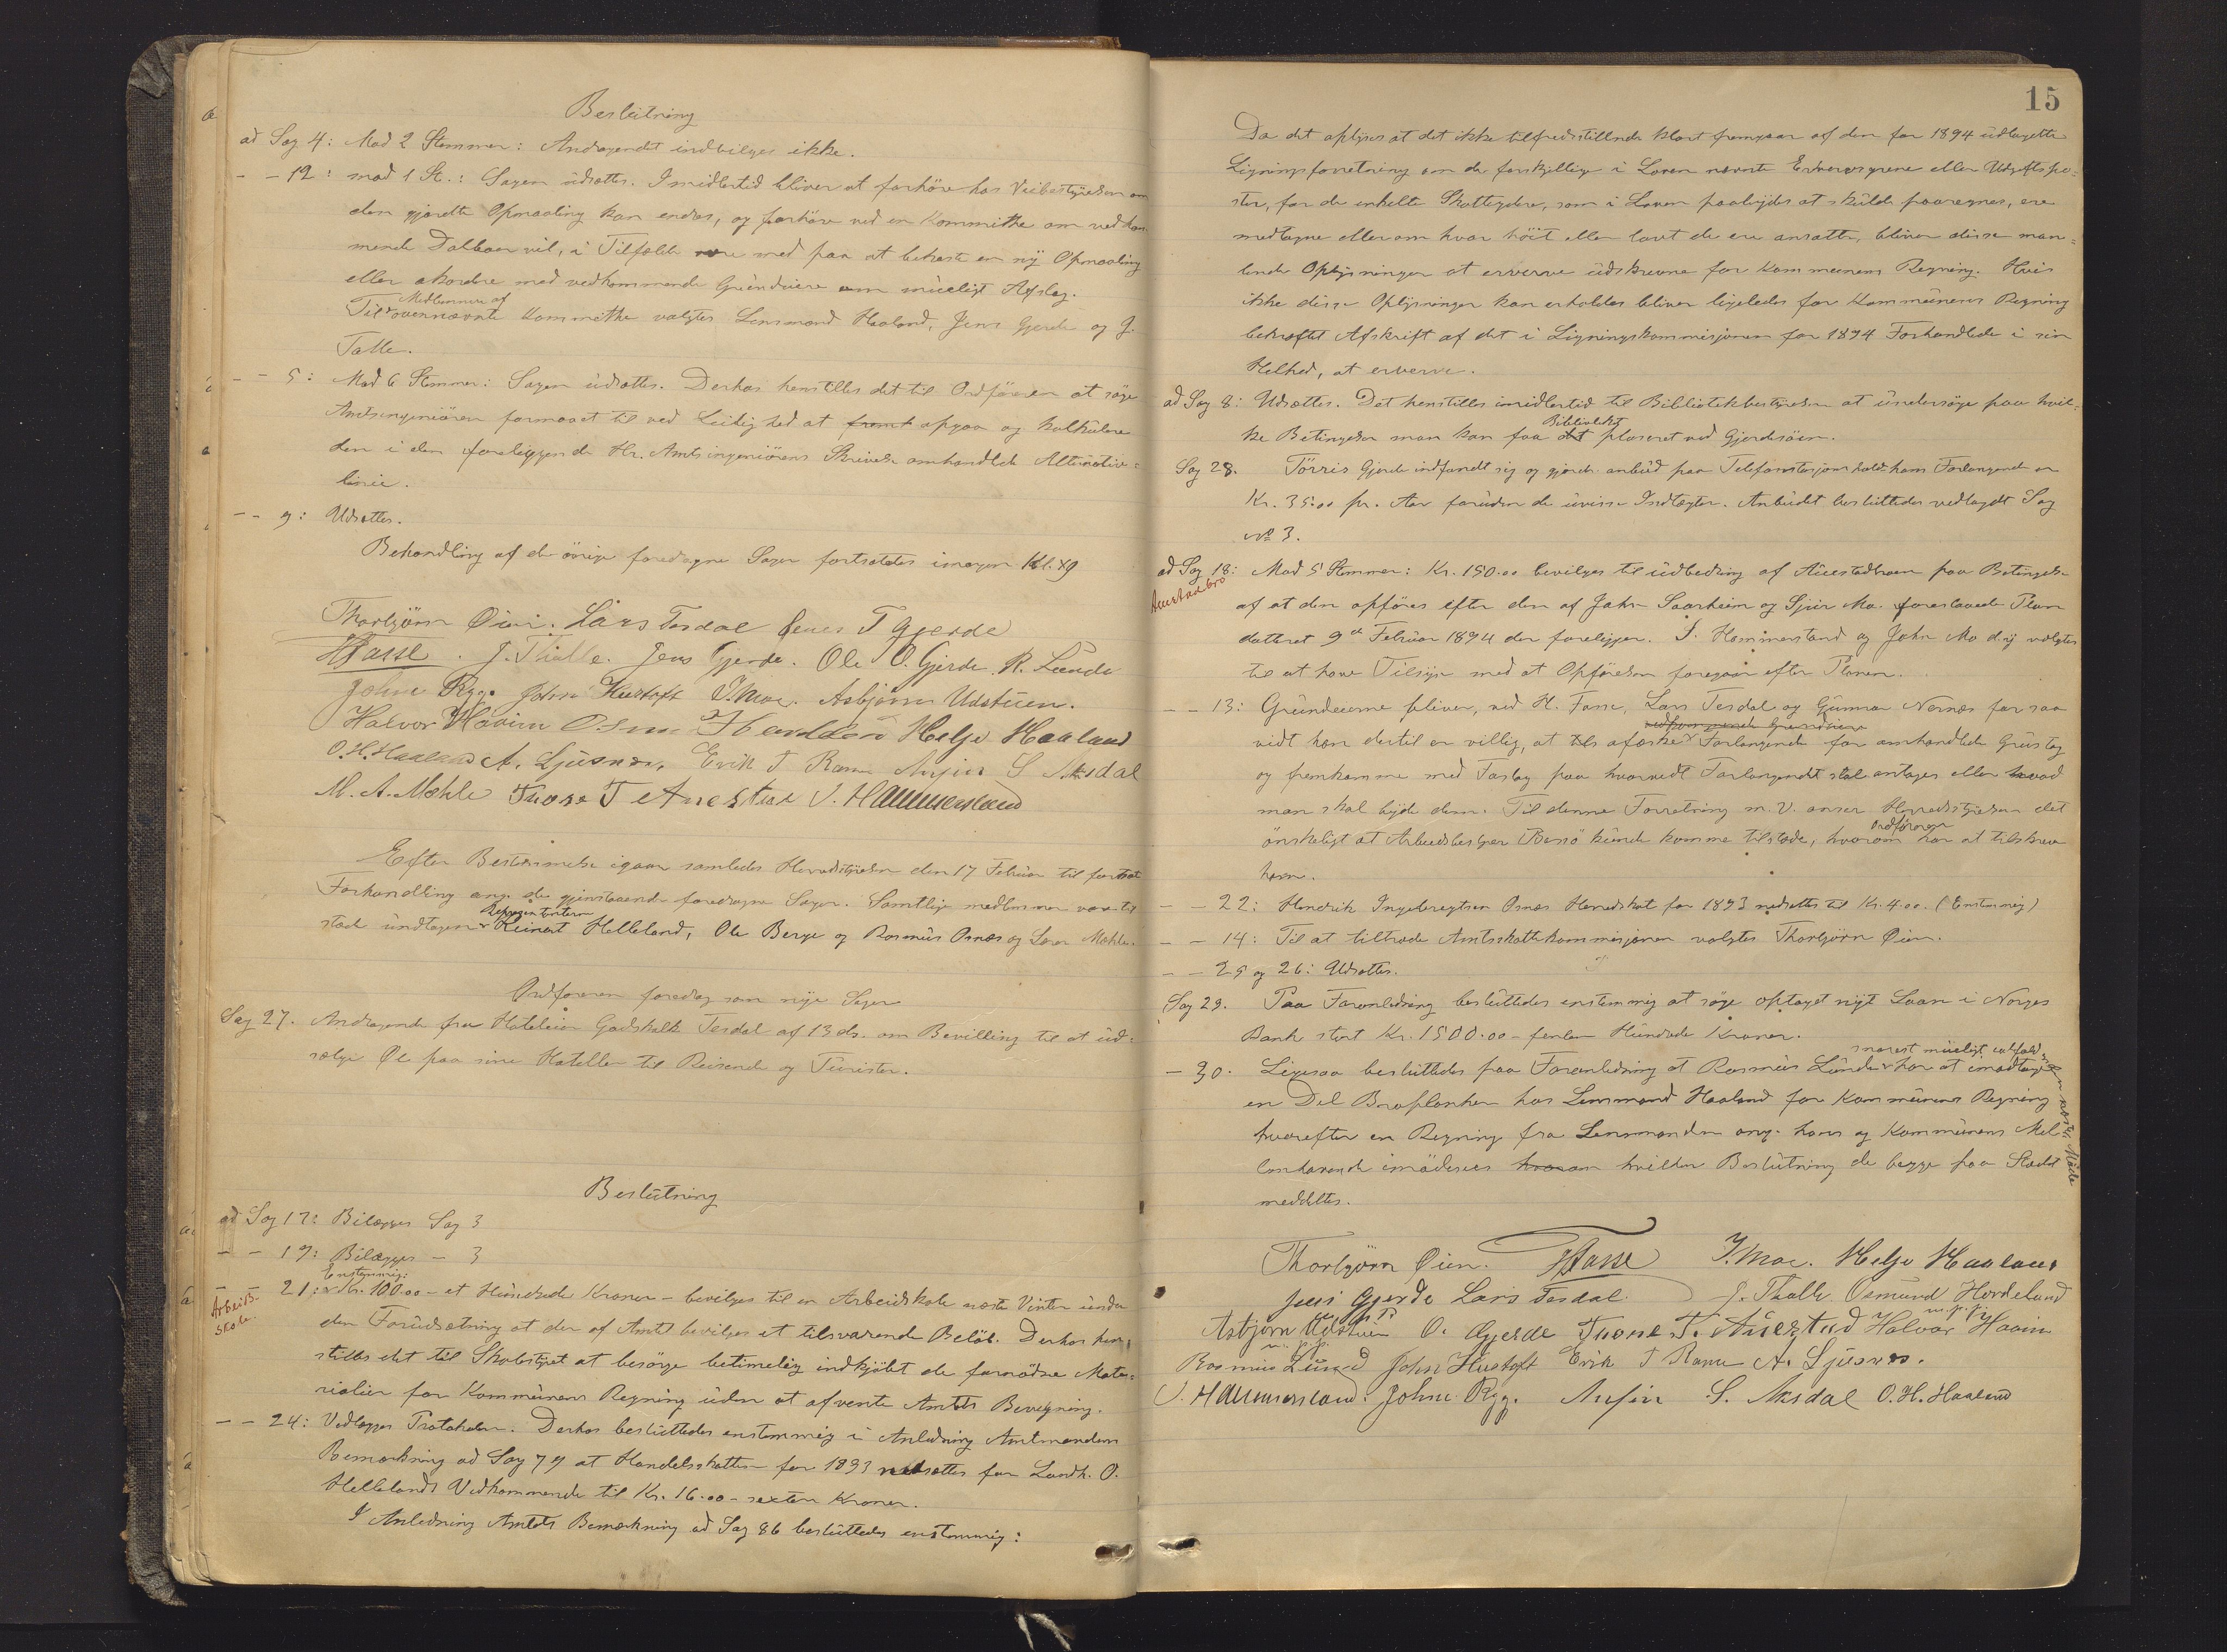 Beslutning
ad Sag 4: Mod 2 Stemmer: Andragendet indvilges ikke.
- - 12: mod 1 St.: Sagen udsættes. Imidlertid bliver at forhöre hos Veibestyrelsen om
den gjordte Opmaaling kan endres, og forhöre ved en Kommitte om vedkom-
mende Dalboer vil, i Tilfælde være med paa at bekoste en ny Opmaaling
eller akordere med vedkommende Grundeiere om mueligt Afslag.
Til Medlemmer af ovennævnte Kommitte valgtes Lensmand Haaland, Jens Gjerde og J.
Talle.
- - 5: Mod 6 Stemmer: Sagen udsættes. Derhos henstilles det til Ordföreren at söge
Amtsingeniören formaaet til ved Leilighed at opgaa og kalkulere
den i den foreliggende Hr. Amtsingeniörens Skrivelse omhandlede Alternativ-
linie.
- - 9: Udsættes.
Behandling af de övrige foredragne Sager fortsættes imorgen Kl. 9
Thorbjörn Öien. Lars Tesdal Jens T Gjerde
H Fasse. J. Thalle. Jens Gjerde. Ole O. Gjerde. R. Lunde
Johne Rygg John Hustoft I. Moe. Asbjörn Udstuen.
Halvor Haavim Osmu Hovdeland Helje Haaland
O. H. Haaland A. Ljusnes. Erik T Ramn Anfin S Aksdal
M. A. Mæhle Tuore T Auestad S. Hammersland
Efter Bestemmelse igaar samledes Herredsstyrelsen den 17 Februar til fortsat
Forhandling ang. de gjenstaaende foredragne Sager. Samtlige medlemmer var til-
stede undtagen Repræsentanterne Reinert Helleland, Ole Berge og Rasmus Osnes og Lars Mæhle.
Ordföreren foredrog som nye Sager
Sag 27. Andragende fra Hoteleier Godskalk Tesdal af 13 ds. om Bevilling til at ud-
sælge Öl paa sine Hoteller til Reisende og Turister.
Beslutning
ad Sag 17: Bilægges Sag 3
- - 19: Bilægges - 3
Arbeids-
skole
- - 21: Enstemmig: Kr. 100.00 - et Hundrede Kroner - bevilges til en Arbeidskole næste Vinter under
den Forudsætning at der af Amtet bevilges et tilsvarende Belöb. Derhos hen-
stilles det til Skolestyret at besörge betimelig indkjöbt de fornödne Mate-
rialier for Kommunens Regning uden at afvente Amtets Bevilgning.
- - 24: Vedlægges Protokolen. Derhos besluttedes enstemmig i Anledning Amtmandens
Bemærkning ad Sag 79 at Handelsskatten for 1893 nedsættes for Landh. O.
Hellelands Vedkommende til Kr. 16.00 - sexten Kroner.
I Anledning Amtets Bemærkning ad Sag 86 besluttedes enstemmig:
15
Da det oplyses at det ikke tilfredsstillende klart fremgaar af den for 1894 udlagte
Ligningsforretning om de forskjellige i Loven nævnte Erhvervsgrene eller Udgiftspo-
ster, for de enkelte Skatteydere, som i Loven paabydes at skulde paaregnes, ere
medtagne eller om hvor höit eller lavt de ere ansatte, bliver disse man-
lende Oplysninger at erverve udskrevne for Kommunens Regning. Hvis
ikke disse Oplysninger kan erholdes bliver ligeledes for Kommunens Regning
bekræftet Afskrift af det i Ligningskommisjonen for 1894 Forhandlede i sin
Helhed, at erverve.
ad Sag 8: Udsættes. Det henstilles imidlertid til Bibliotekbestyrelsen at undersöge paa hvil-
ke Betingelser man kan faa Biblioteket plaseret ved Gjerdesöen.
Sag 28. Törris Gjerde indfandt sig og gjorde anbud paa Telefonstasjonshold. hans Forlangende er
Kr. 35.00 pr. Aar foruden de uvisse Indtægter. Anbudet besluttedes vedlagdt Sag
No 3.
Auestadbro
ad Sag 18: Mod 5 Stemmer: Kr. 150.00 bevilges til udbedring af Auestadbroen paa Betingelse
af at den opföres efter den af John Saarheim og Sjur Mo foreslaaede Plan
datteret 9de Februar 1894 der foreligger. S. Hammersland og John Mo d.y. valgtes
til at have Tilsyn med at Opförelsen foregaar efter Planen.
- - 13: Grundeierne bliver, ved H. Fasse, Lars Tesdal og Gunnar Nernes for saa
vidt han dertil er villig, at afæske vedkommende Grundeiere Forlangende for omhandlede Grustag
og fremkomme med Forslag paa hvorvidt Forlangendet skal antages eller hvad
man skal byde dem. Til denne Forretning m. V. anser Herredsstyrelsen det
önskeligt at Arbeidsbestyrer Bersö kunde komme tilstede, hvorom Ordföreren har at tilskrive
ham.
- - 22: Hendrik Ingebregtsen Osnes Herredskat for 1893 nedsættes til Kr. 4.00. (Enstemmig)
- - 14: Til at tiltræde Amtsskattekommisjonen valgtes Thorbjörn Öien.
- - 25 og 26: Udsættes.
Sag 29. Paa Foranledning besluttedes enstemmig at söge optaget nyt Laan i Norges
Bank stort Kr. 1500.00 - femten Hundrede Kroner.
- 30. Ligesaa besluttedes paa Foranledning at Rasmus Lunde snarest mueligt, ialfald inden næste Möde har at imodtage
en Del Broplanker hos Lensmand Haaland for Kommunens Regning
hvorefter en Regning fra Lensmanden ang. hans og Kommunens Mel-
lemhavende imödesees hvilken Beslutning de begge paa Stedet
meddeltes.
Thorbjörn Öien. H Fasse I. Moe. Helje Haaland
Jens Gjerde Lars Tesdal. J. Thalle. Osmund Hovdeland
m. p. p.
Asbjörn Udstuen O. Gjerde Tuore T. Auestad Halvor Haavim
m. p. p.
Rasmus Lund John Hustoft Erik T Ramn A. Ljusnes.
S. Hammersland. Johne Rygg. Anfin S. Aksdal O. H. Haaland